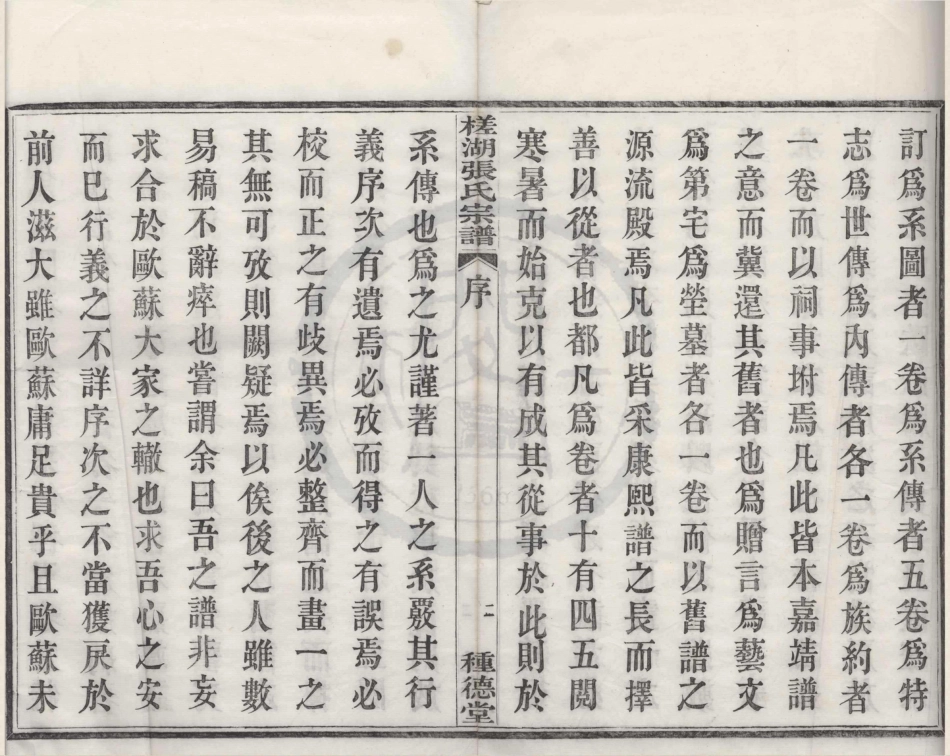 訂爲系圖者一卷爲系傳者五卷爲特
志爲世傳爲內傳者各一卷爲族約者
一卷而以祠事坿焉凡此皆本嘉靖譜
之意而冀還其舊者也爲贈言爲藝文
爲第宅爲塋墓者各一卷而以舊譜之
源流殿焉凡此皆采康熙譜之長而擇
善以從者也都凡爲卷者十有四五閲
寒暑而始克以有成其從事於此則於
槎湖張氏宗譜 序 二 種德堂
系傳也爲之尤謹著一人之系覈其行
義序次有遺焉必攷而得之有誤焉必
校而正之有歧異焉必整齊而畫一之
其無可攷則闕疑焉以俟後之人雖數
易稿不辭瘁也嘗謂余曰吾之譜非妄
求合於歐蘇大家之轍也求吾心之安
而已行義之不詳序次之不當獲戾於
前人滋大雖歐蘇庸足貴乎且歐蘇未